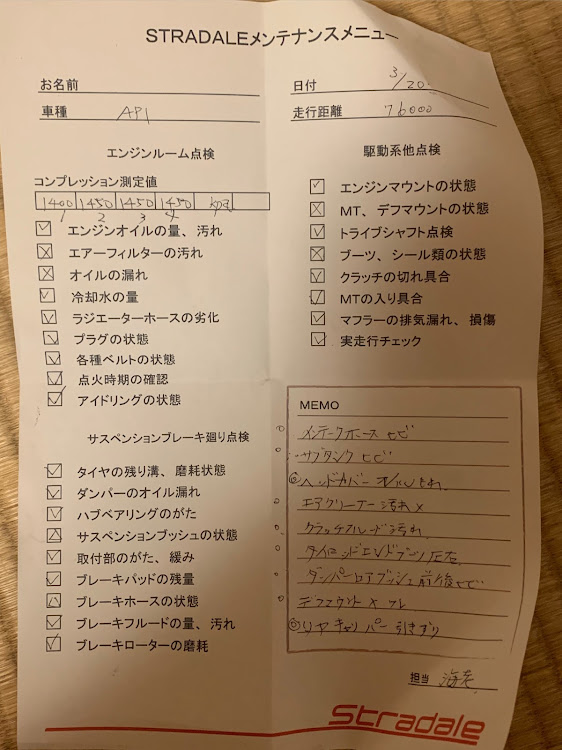 STRADALEメンテナンスメニュー
お名前
日付 3/20
車種 AP1
走行距離 76000
エンジンルーム点検
コンプレッション測定値
1400 1450 1450 1450 kpa
1 2 3 4
☑ エンジンオイルの量、汚れ
☒ エアーフィルターの汚れ
☒ オイルの漏れ
☑ 冷却水の量
☑ ラジエーターホースの劣化
☑ プラグの状態
☑ 各種ベルトの状態
☑ 点火時期の確認
☑ アイドリングの状態
サスペンションブレーキ廻り点検
☑ タイヤの残り溝、磨耗状態
☑ ダンパーのオイル漏れ
☑ ハブベアリングのがた
△ サスペンションブッシュの状態
☑ 取付部のがた、緩み
☑ ブレーキパッドの残量
△ ブレーキホースの状態
☑ ブレーキフルードの量、汚れ
☑ ブレーキローターの磨耗
駆動系他点検
☑ エンジンマウントの状態
☒ MT、デフマウントの状態
☑ トライブシャフト点検
☒ ブーツ、シール類の状態
☑ クラッチの切れ具合
☑ MTの入り具合
☑ マフラーの排気漏れ、損傷
☑ 実走行チェック
MEMO
○ インテークホース ヒビ
○ サブタンク ヒビ
◎ ヘッドカバー オイルもれ
○ エアクリーナー 汚れ×
○ クラッチフルード 汚れ
○ タイロッドエンドブーツ 左右
○ ダンパーロアブッシュ 前後ヒビ
○ デフマウント ×
◎ リヤキャリパー 引きずり
担当 海老
Stradale